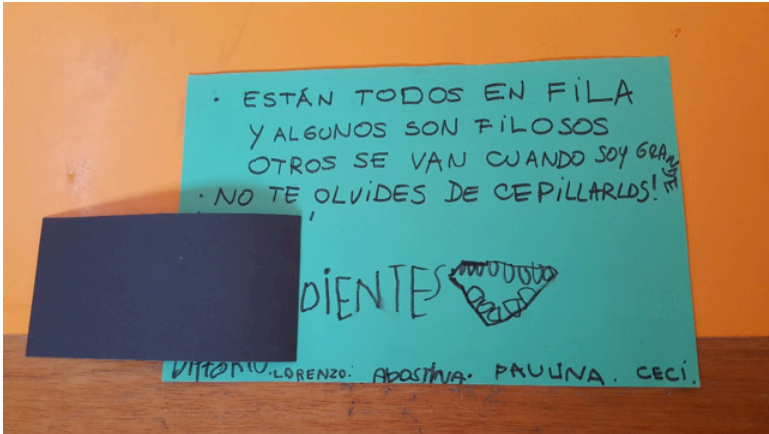 • ESTÁN TODOS EN FILA
Y ALGUNOS SON FILOSOS
OTROS SE VAN CUANDO SOY GRANDE
• NO TE OLVIDES DE CEPILLARLOS!
DIENTES
LORENZO. AGOSTINA. PAULINA. CECI.